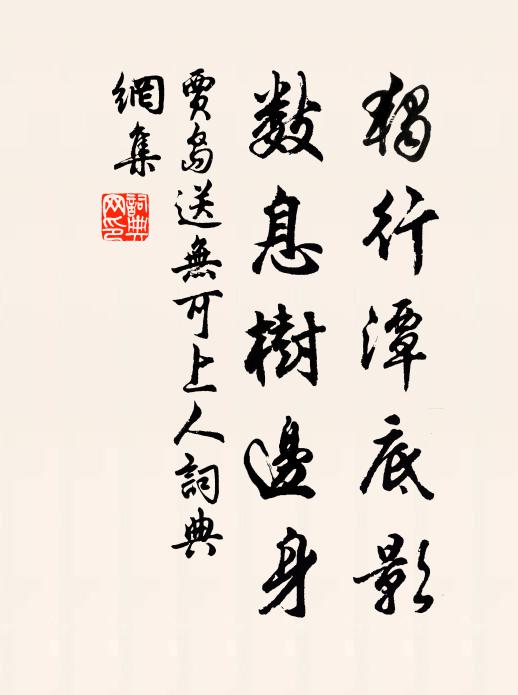 獨行潭底影
數息樹邊身
賈島送無可上人詞典
網集
詞典
网印